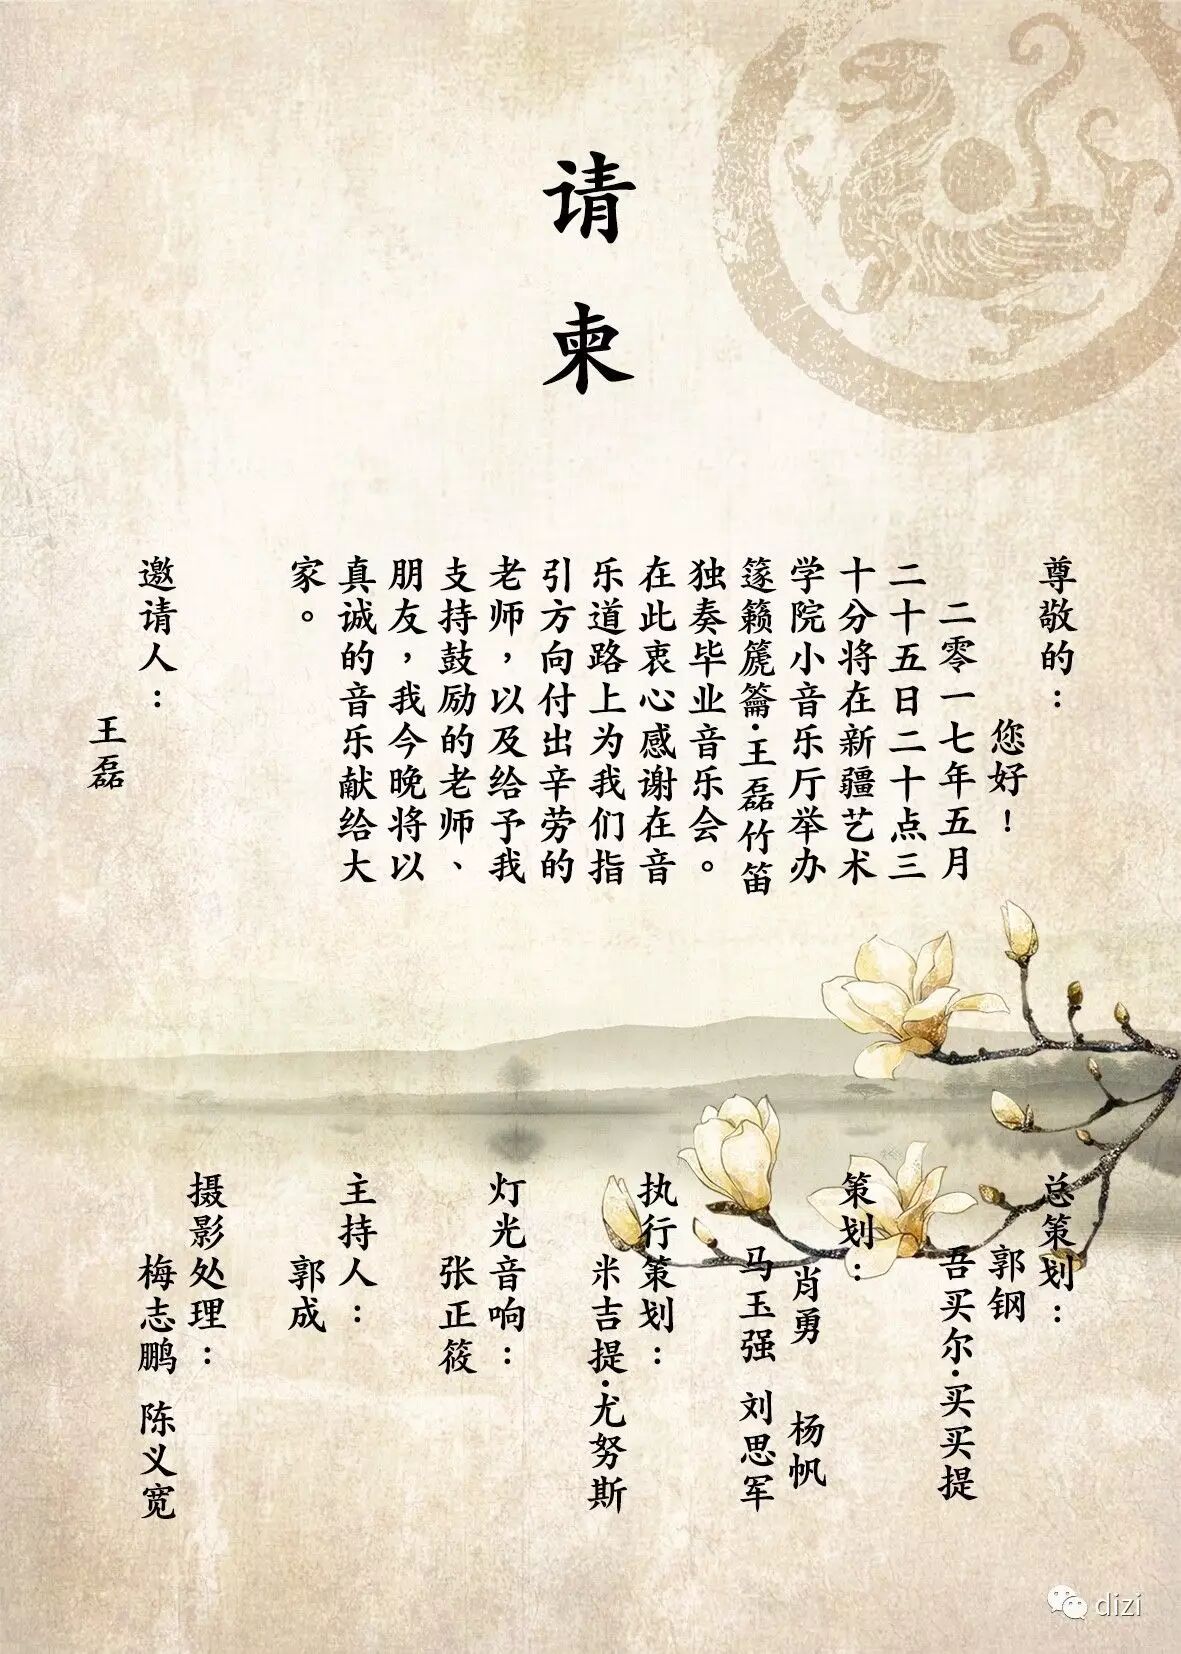 请柬
尊敬的：
您好！
二零一七年五月
二十五日二十点三
十分将在新疆艺术
学院小音乐厅举办
篴籁篪龠·王磊竹笛
独奏毕业音乐会。
在此衷心感谢在音
乐道路上为我们指
引方向付出辛劳的
老师，以及给予我
支持鼓励的老师、
朋友，我今晚将以
真诚的音乐献给大
家。
邀请人：
王磊
总策划：
郭钢
吾买尔·买买提
策划：
肖勇 杨帆
马玉强 刘思军
执行策划：
米吉提·尤努斯
灯光音响：
张正筱
主持人：
郭成
摄影处理：
梅志鹏 陈义宽
dizi